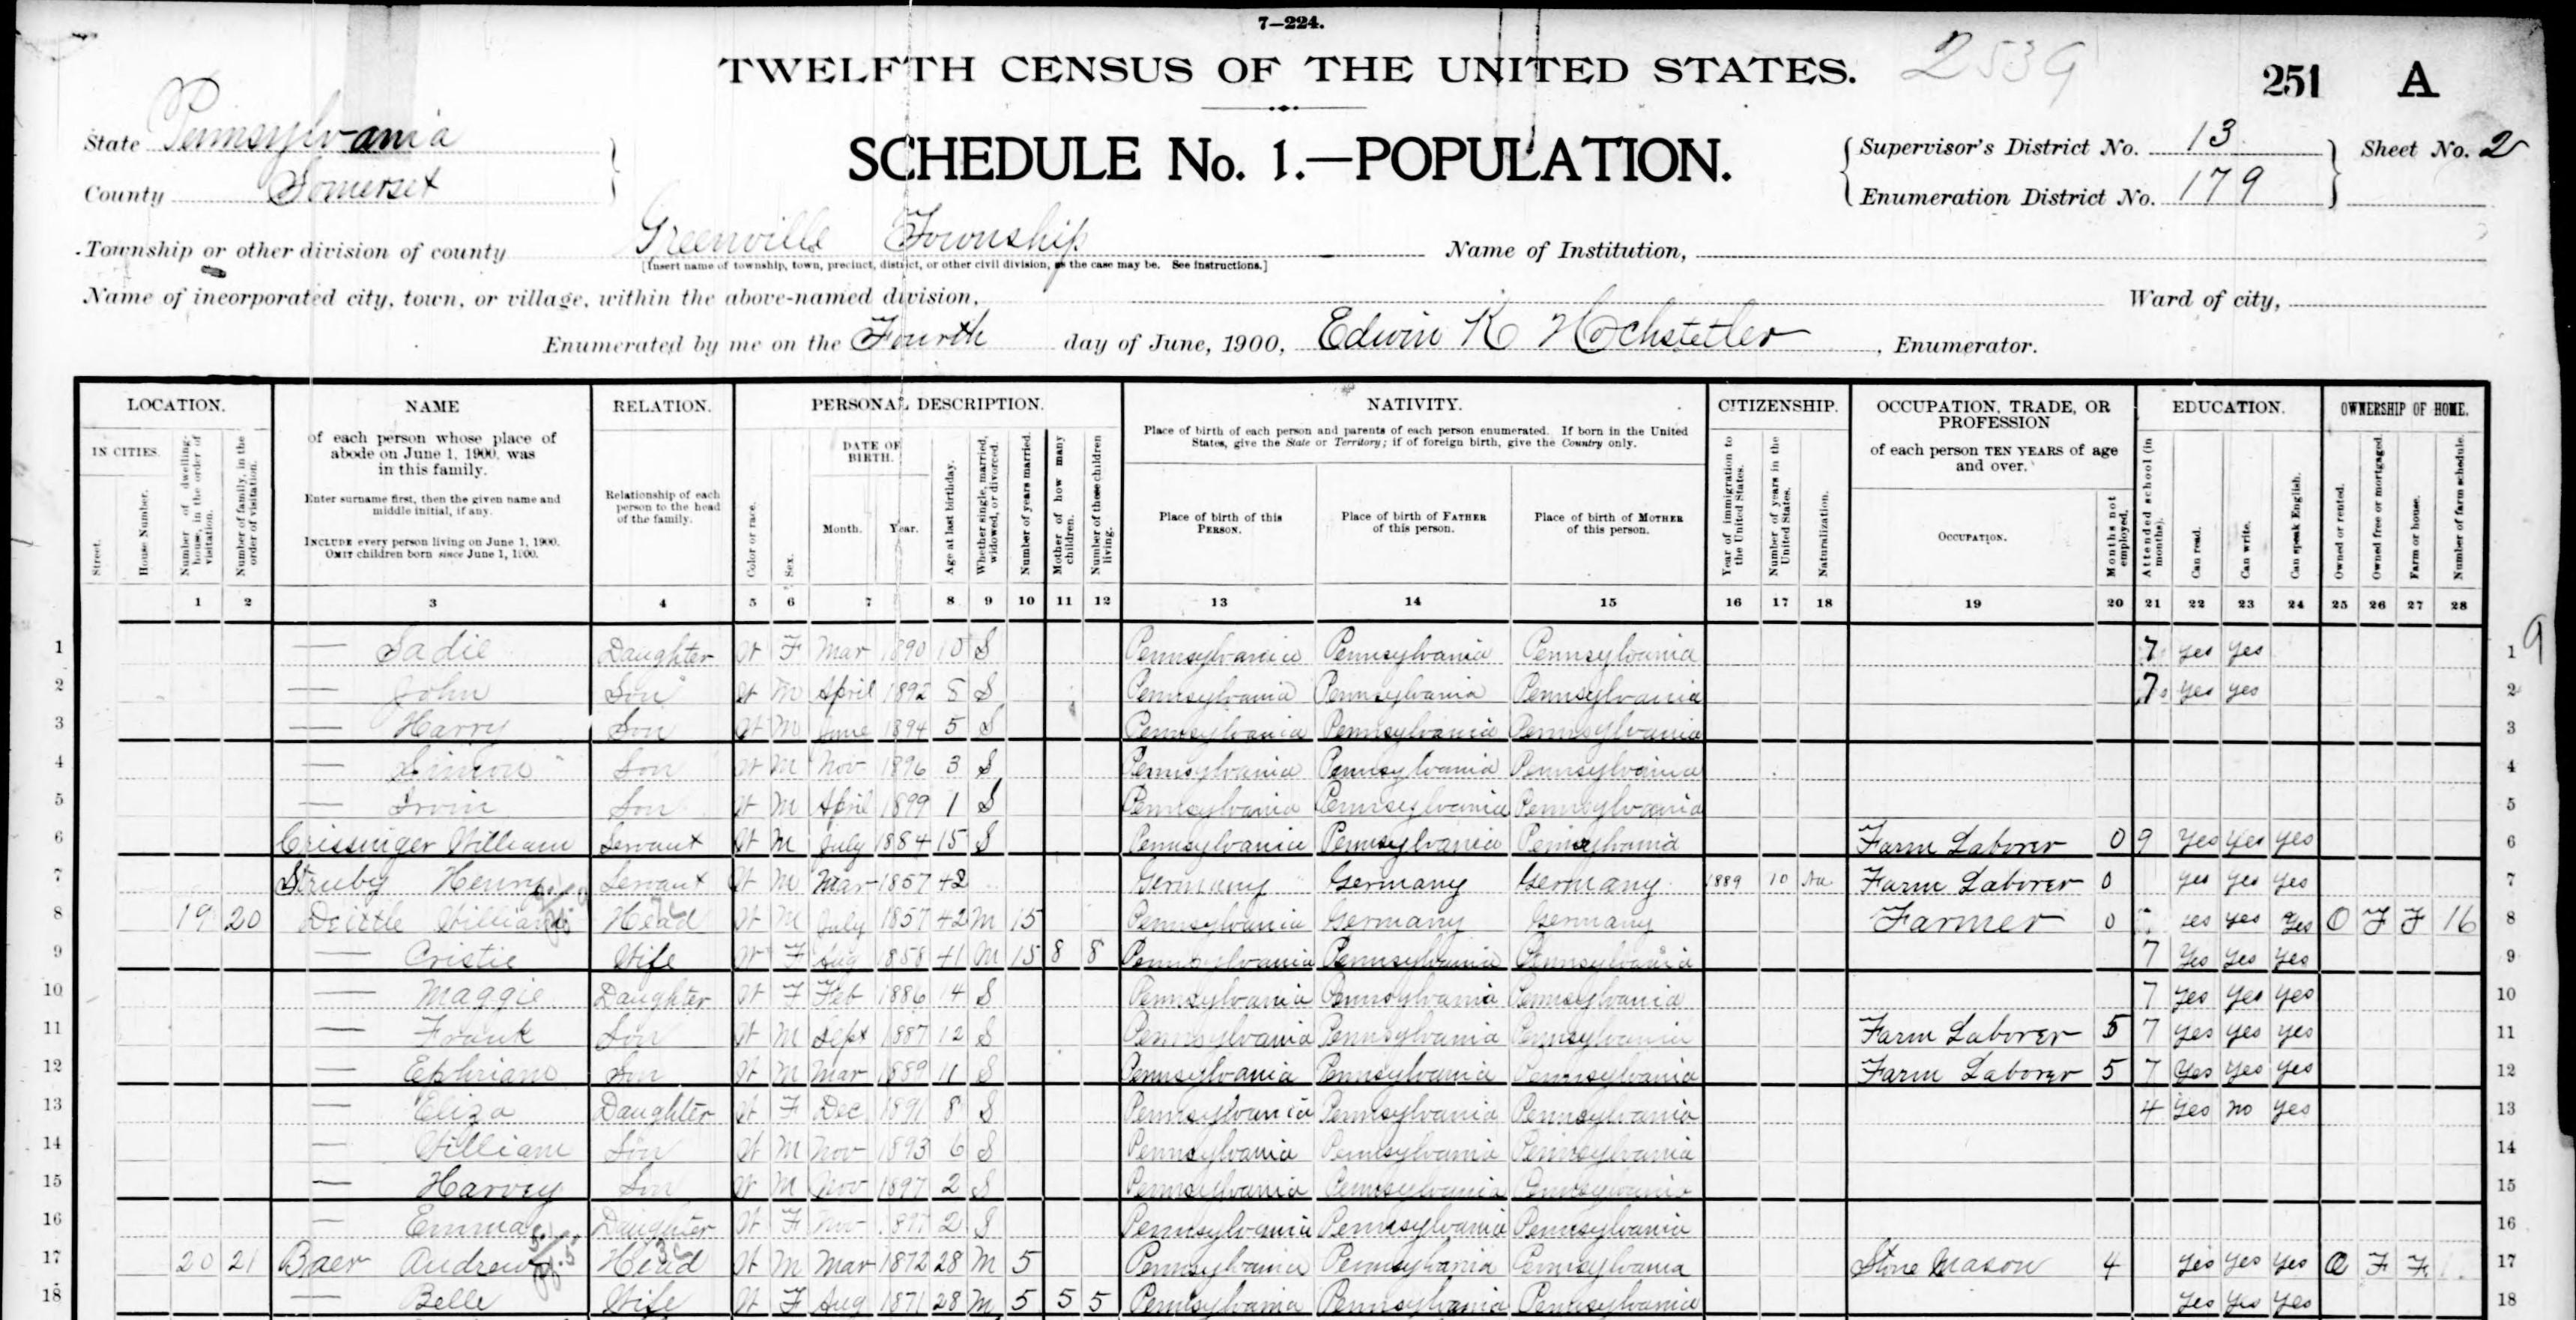 7—224.
TWELFTH CENSUS OF THE UNITED STATES.
2539
251 A
State Pennsylvania
County Somerset
SCHEDULE No. 1.—POPULATION.
Supervisor's District No. 13
Enumeration District No. 179
Sheet No. 2
Township or other division of county Greenville Township
[Insert name of township, town, precinct, district, or other civil division, as the case may be. See instructions.]
Name of Institution,
Name of incorporated city, town, or village, within the above-named division,
Ward of city,
Enumerated by me on the Fourth day of June, 1900, Edwin K Hochstetler, Enumerator.
LOCATION. NAME RELATION. PERSONAL DESCRIPTION. NATIVITY. CITIZENSHIP. OCCUPATION, TRADE, OR PROFESSION EDUCATION. OWNERSHIP OF HOME.
IN CITIES.
Street.
House Number.
Number of dwelling-house, in the order of visitation.
Number of family, in the order of visitation.
of each person whose place of abode on June 1, 1900, was in this family.
Enter surname first, then the given name and middle initial, if any.
INCLUDE every person living on June 1, 1900.
OMIT children born since June 1, 1900.
Relationship of each person to the head of the family.
Color or race.
Sex.
DATE OF BIRTH.
Month. Year.
Age at last birthday.
Whether single, married, widowed, or divorced.
Number of years married.
Mother of how many children.
Number of these children living.
Place of birth of each person and parents of each person enumerated. If born in the United States, give the State or Territory; if of foreign birth, give the Country only.
Place of birth of this PERSON.
Place of birth of FATHER of this person.
Place of birth of MOTHER of this person.
Year of immigration to the United States.
Number of years in the United States.
Naturalization.
of each person TEN YEARS of age and over.
OCCUPATION.
Months not employed.
Attended school (in months).
Can read.
Can write.
Can speak English.
Owned or rented.
Owned free or mortgaged.
Farm or house.
Number of farm schedule.
1 2 3 4 5 6 7 8 9 10 11 12 13 14 15 16 17 18 19 20 21 22 23 24 25 26 27 28
1 — Sadie Daughter W F Mar 1890 10 S Pennsylvania Pennsylvania Pennsylvania 7 yes yes 1 9
2 — John Son W M April 1892 8 S Pennsylvania Pennsylvania Pennsylvania 7 yes yes 2
3 — Harry Son W M June 1894 5 S Pennsylvania Pennsylvania Pennsylvania 3
4 — Simon Son W M Nov 1896 3 S Pennsylvania Pennsylvania Pennsylvania 4
5 — Irvin Son W M April 1899 1 S Pennsylvania Pennsylvania Pennsylvania 5
6 Crissinger William Servant W M July 1884 15 S Pennsylvania Pennsylvania Pennsylvania Farm Laborer 0 9 yes yes yes 6
7 Struby Henry Servant W M Mar 1857 42 Germany Germany Germany 1889 10 Na Farm Laborer 0 yes yes yes 7
8 19 20 Deittle William Head W M July 1857 42 M 15 Pennsylvania Germany Germany Farmer 0 yes yes yes O F F 16 8
9 — Cristie Wife W F Aug 1858 41 M 15 8 8 Pennsylvania Pennsylvania Pennsylvania 7 yes yes yes 9
10 — Maggie Daughter W F Feb 1886 14 S Pennsylvania Pennsylvania Pennsylvania 7 yes yes yes 10
11 — Frank Son W M Sept 1887 12 S Pennsylvania Pennsylvania Pennsylvania Farm Laborer 5 7 yes yes yes 11
12 — Ephriam Son W M Mar 1889 11 S Pennsylvania Pennsylvania Pennsylvania Farm Laborer 5 7 yes yes yes 12
13 — Eliza Daughter W F Dec 1891 8 S Pennsylvania Pennsylvania Pennsylvania 4 yes no yes 13
14 — William Son W M Nov 1893 6 S Pennsylvania Pennsylvania Pennsylvania 14
15 — Harvey Son W M Nov 1897 2 S Pennsylvania Pennsylvania Pennsylvania 15
16 — Emma Daughter W F Nov 1897 2 S Pennsylvania Pennsylvania Pennsylvania 16
17 20 21 Baer Andrew Head W M Mar 1872 28 M 5 Pennsylvania Pennsylvania Pennsylvania Stone Mason 4 yes yes yes O F F 17
18 — Belle Wife W F Aug 1871 28 M 5 5 5 Pennsylvania Pennsylvania Pennsylvania yes yes yes 18